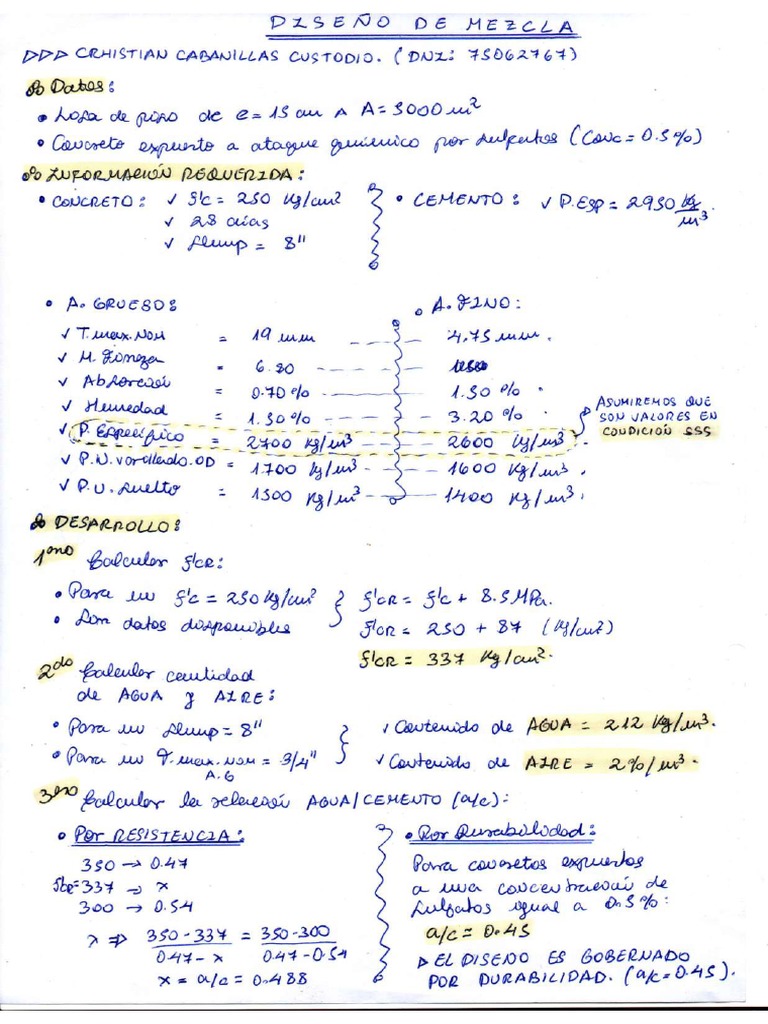 DISEÑO DE MEZCLA
▷▷▷ CRHISTIAN CABANILLAS CUSTODIO. (DNI: 75062767)
Datos:
• Losa de piso de e = 15 cm ∧ A = 5000 m²
• Concreto expuesto a ataque químico por sulfatos (Conc = 0.5%)
INFORMACIÓN REQUERIDA:
• CONCRETO: ✓ f'c = 250 Kg/cm²
✓ 28 días
✓ Slump = 8"
• CEMENTO: ✓ P.ESP = 2950 kg/m³.
• A. GRUESO:
• A. FINO:
✓ T.max.Nom = 19 mm 4.75 mm.
✓ M. Fineza = 6.80
✓ Absorción = 0.70 % 1.30 %
✓ Humedad = 1.50 % 3.20 %
✓ P. Específico = 2700 kg/m³ 2600 kg/m³
ASUMIREMOS QUE
SON VALORES EN
CONDICIÓN SSS
✓ P.U. varillado.OD = 1700 kg/m³ 1600 kg/m³.
✓ P.U. Suelto = 1500 Kg/m³ 1400 Kg/m³.
DESARROLLO:
1ero Calcular f'CR:
• Para un f'c = 250 Kg/cm²
• Son datos disponibles
f'CR = f'c + 8.5 MPa.
f'CR = 250 + 87 (Kg/cm²)
f'CR = 337 Kg/cm².
2do Calcular cantidad
de AGUA y AIRE:
• Para un Slump = 8"
• Para un T.max.Nom = 3/4"
A.G
✓ Contenido de AGUA = 212 Kg/m³.
✓ Contenido de AIRE = 2%/m³.
3ero Calcular la relación AGUA/CEMENTO (a/c):
• Por RESISTENCIA:
350 → 0.47
337 → x
300 → 0.54
x ⇒ 350-337 / 0.47-x = 350-300 / 0.47-0.54
x = a/c = 0.488
• Por Durabilidad:
Para concretos expuestos
a una concentración de
sulfatos igual a 0.5%:
a/c = 0.45
▷ EL DISEÑO ES GOBERNADO
POR DURABILIDAD. (a/c = 0.45).